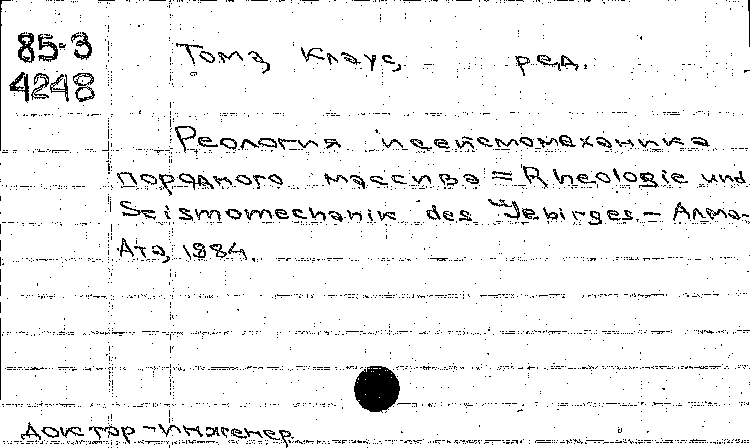 85-3
4248
Тома, Клаус, ред.
Реология и сейсмомеханика
породного массива = Rheologie und
Seismomechanik des Gebirges. – Алма-
Ата, 1984.
Доктор-инженер